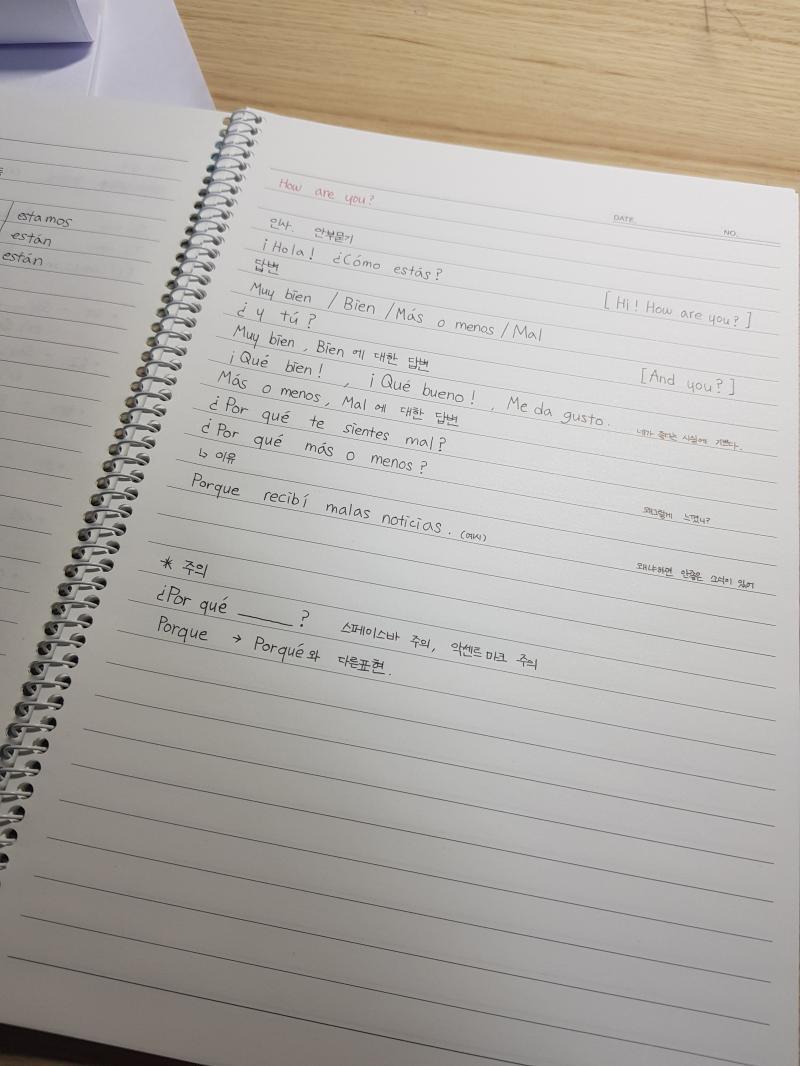 estamos
están
están
How are you?
DATE.
NO.
인사. 안부묻기
¡Hola! ¿Cómo estás?
[Hi! How are you?]
답변
Muy bien / Bien / Más o menos / Mal
¿y tú?
[And you?]
Muy bien, Bien에 대한 답변
¡Qué bien!, ¡Qué bueno!, Me da gusto.
네가 좋다는 사실에 기쁘다.
Más o menos, Mal에 대한 답변
¿Por qué te sientes mal?
왜그렇게 느꼈니?
¿Por qué más o menos?
↳ 이유
왜냐하면 안좋은 소식이 있어
Porque recibí malas noticias. (예시)
* 주의
¿Por qué ____?
스페이스바 주의, 악센트 마크 주의
Porque → Porqué와 다른표현.